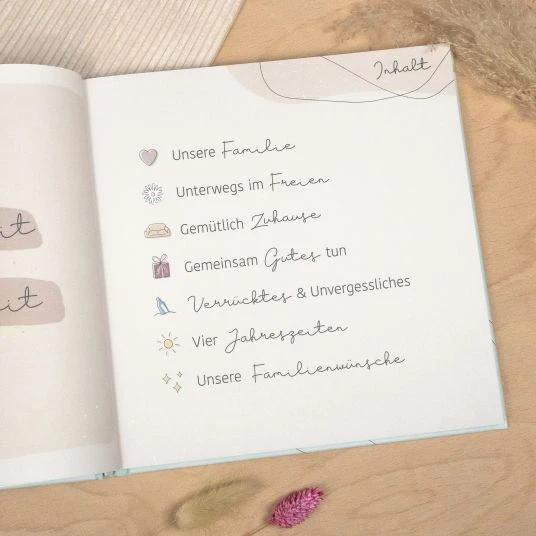 it
it
Inhalt
Unsere Familie
Unterwegs im Freien
Gemütlich Zuhause
Gemeinsam Gutes tun
Verrücktes & Unvergessliches
Vier Jahreszeiten
Unsere Familienwünsche